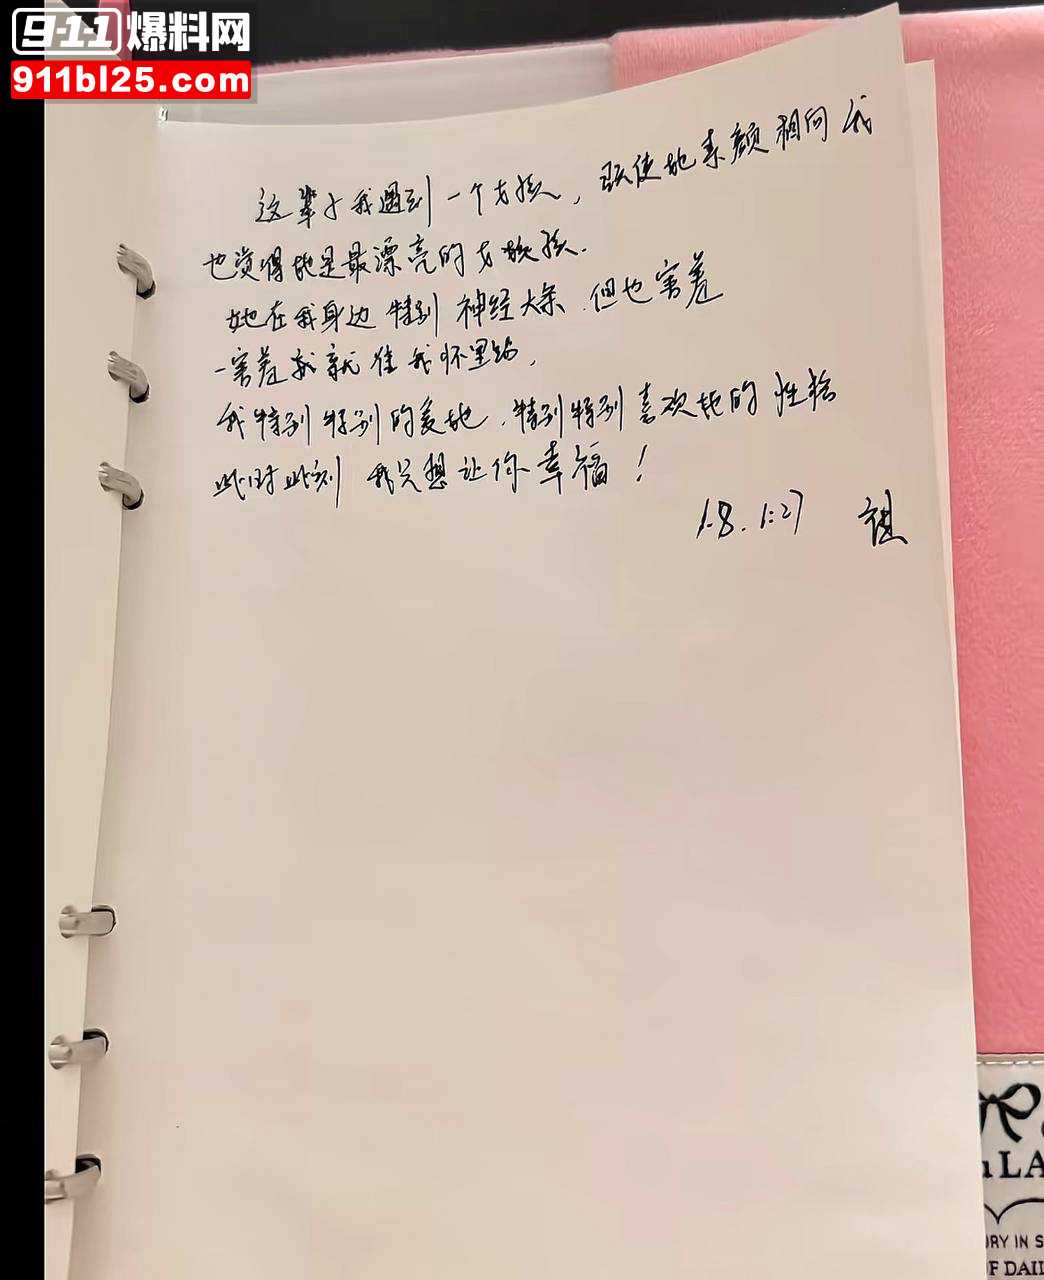 911爆料网
911bl25.com
这辈子我遇到一个女孩，即使她素颜相向我
也觉得她是最漂亮的女孩.
她在我身边 特别 神经大条.但也害羞
一害羞就 往我怀里钻,
我特别特别的爱她，特别特别喜欢她的性格
此时此刻 我只想让你幸福！
1.8. 1:27
u LA
ORY IN S
F DAI